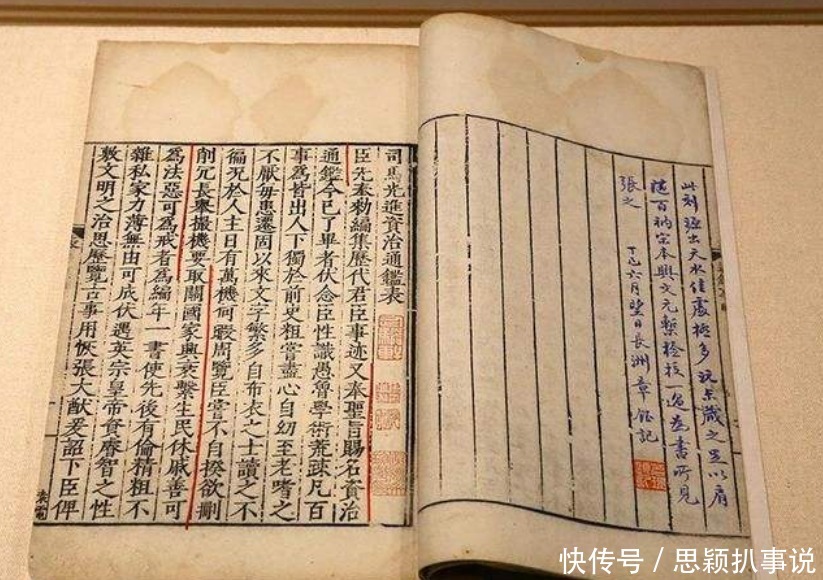 此刻源出天水佳處極多藏之足以肩
隨百衲宋本與文元槧檢校一過為書所見
張之
丁巳六月望日長洲章鈺記
司馬光進資治通鑑表
臣先奉勅編集歷代君臣事迹又奉聖旨賜名資治
通鑑今已了畢者伏念臣性識愚魯學術荒疎凡百
事爲皆出人下獨於前史粗嘗盡心自幼至老嗜之
不厭毎患遷固以來文字繁多自布衣之士讀之不
徧況於人主日有萬機何暇周覽臣嘗不自揆欲刪
削冗長舉撮機要取關國家興衰繫生民休戚善可
爲法惡可爲戒者爲編年一書使先後有倫精粗不
雜私家力薄無由可成伏遇英宗皇帝資睿智之性
敷文明之治思歷覽古事用恢張大猷爰詔下臣俾
快传号 / 思颖扒事说